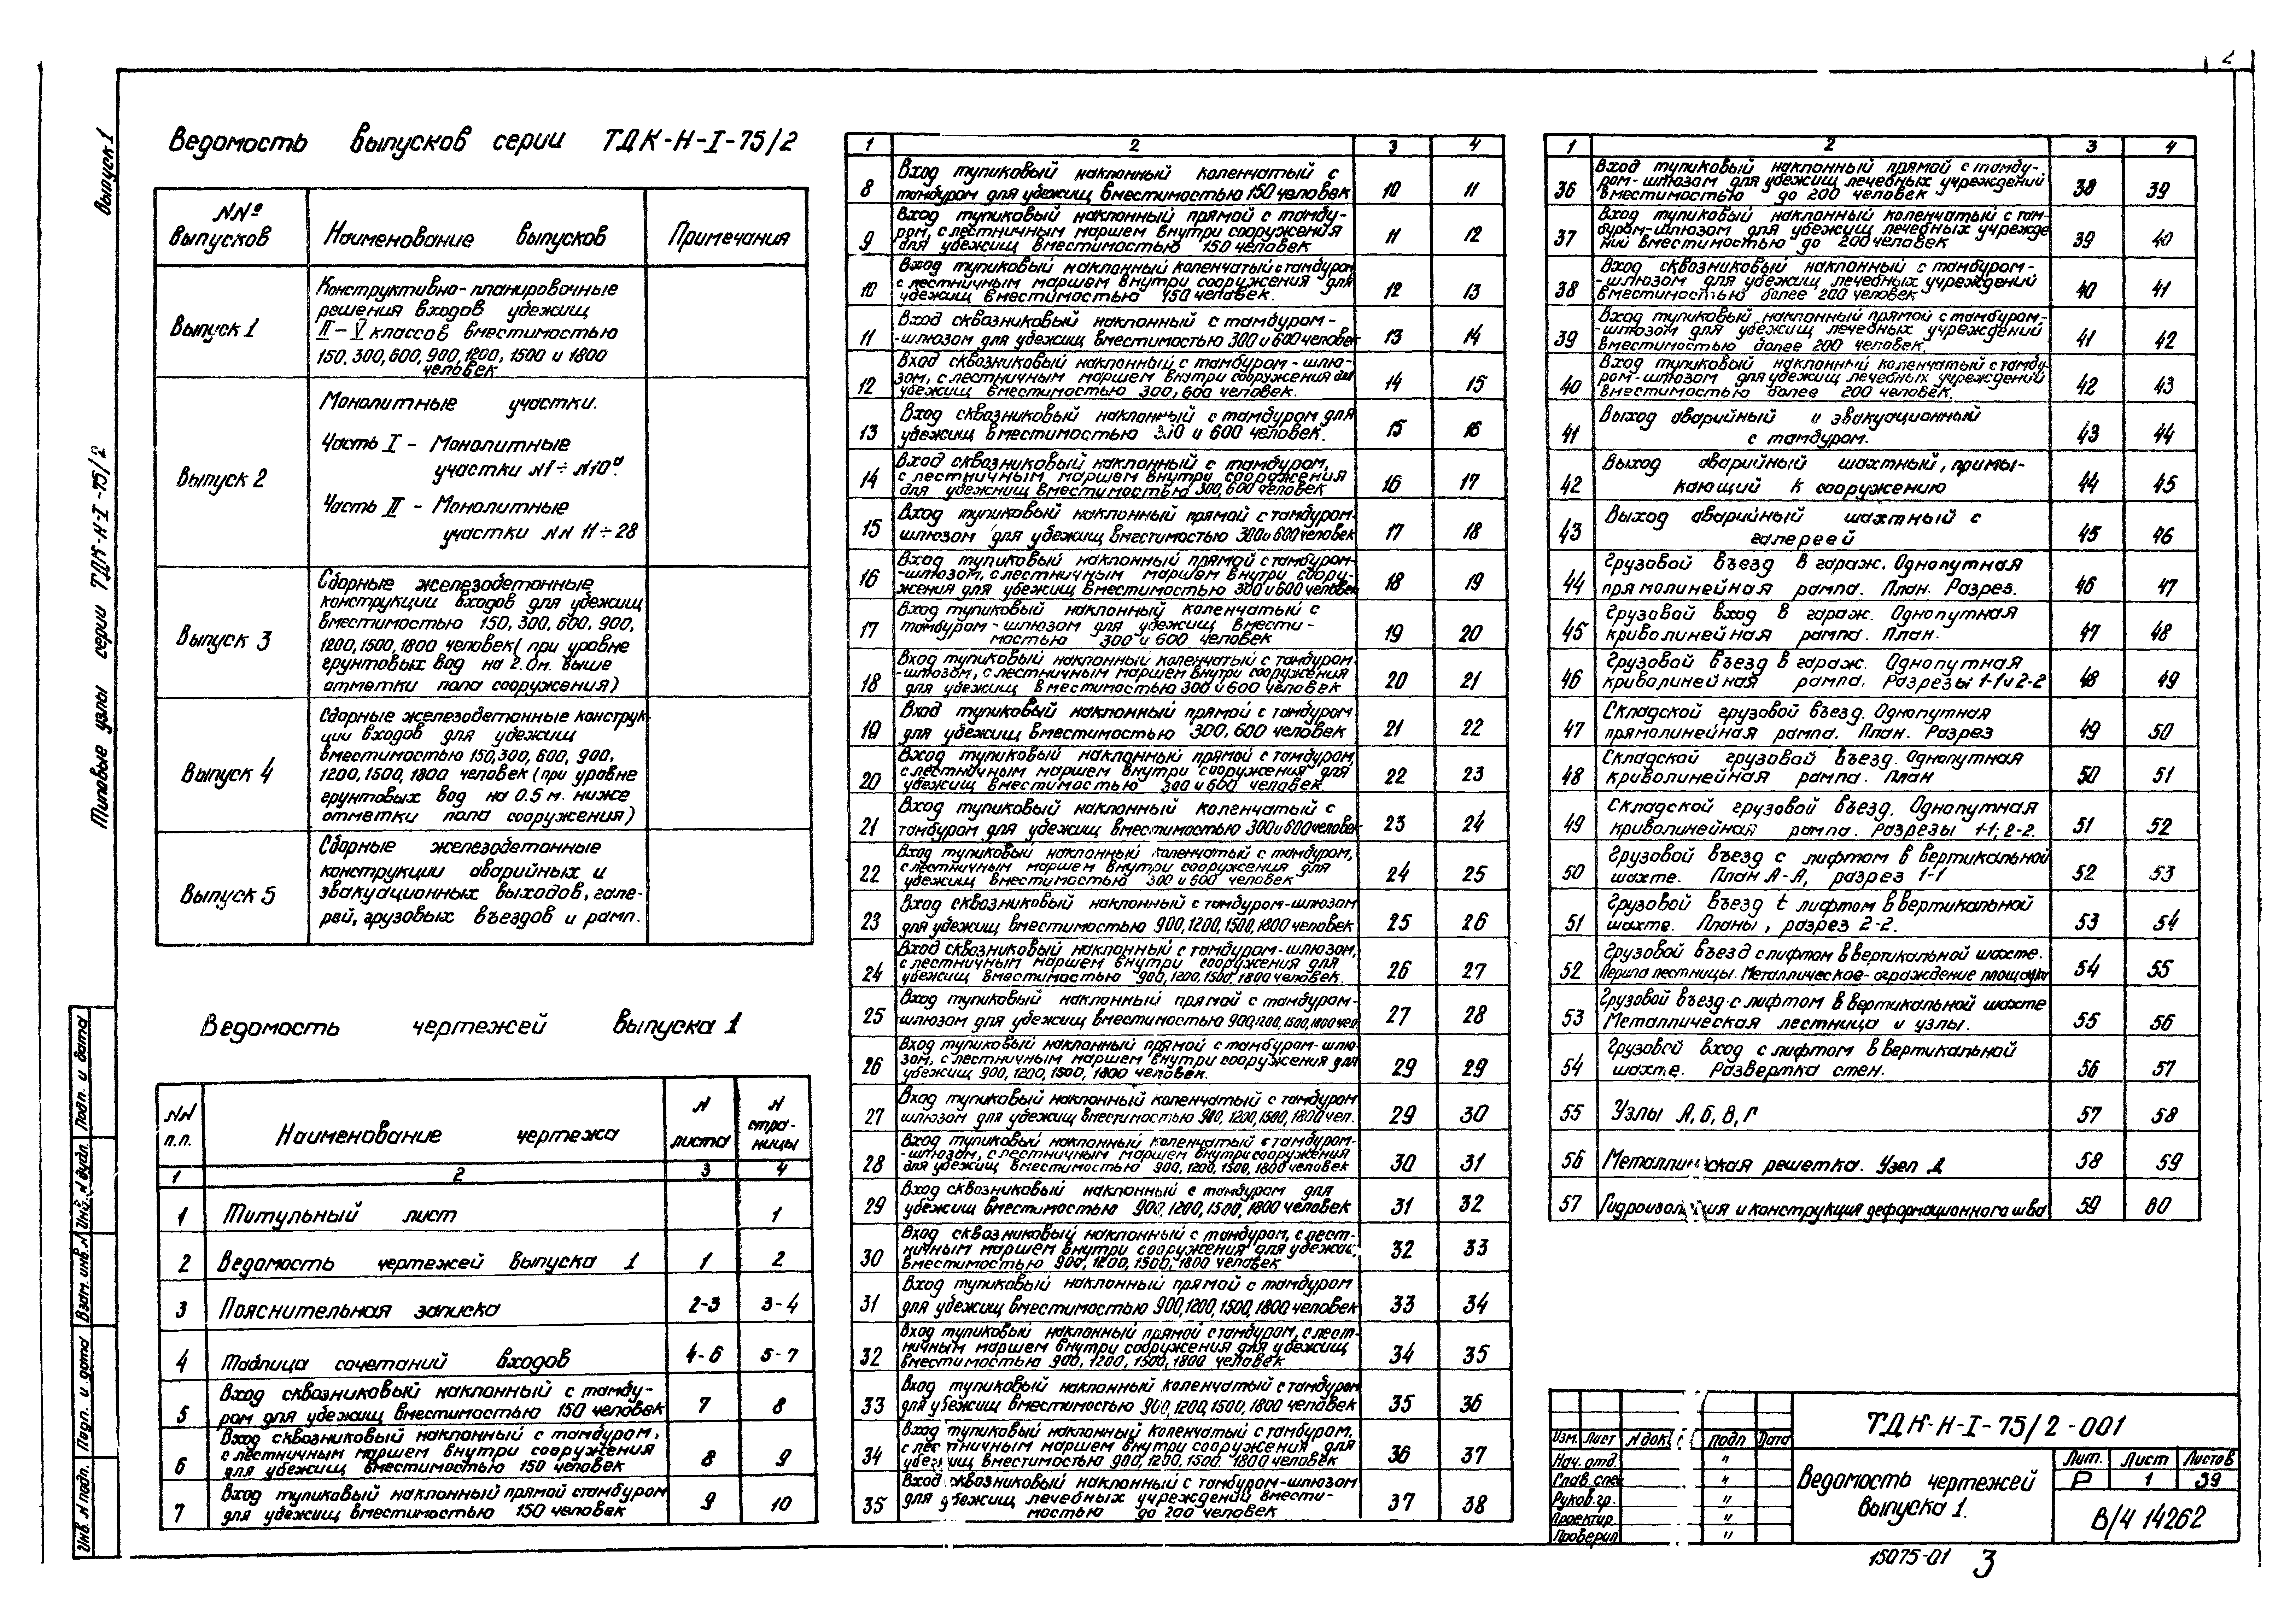 2
Выпуск 1
Типовые узлы серии ТДК-Н-I-75/2
Ведомость выпусков серии ТДК-Н-I-75/2
NNº выпусков
Наименование выпусков
Примечания
Выпуск 1
Конструктивно-планировочные
решения входов убежищ
II-V классов вместимостью
150, 300, 600, 900, 1200, 1500 и 1800
человек
Выпуск 2
Монолитные участки.
Часть I - Монолитные
участки N1÷N10ª
Часть II - Монолитные
участки NN 11÷28
Выпуск 3
Сборные железобетонные
конструкции входов для убежищ
вместимостью 150, 300, 600, 900,
1200, 1500, 1800 человек (при уровне
грунтовых вод на 2.0м. выше
отметки пола сооружения)
Выпуск 4
Сборные железобетонные конструк-
ции входов для убежищ
вместимостью 150, 300, 600, 900,
1200, 1500, 1800 человек (при уровне
грунтовых вод на 0.5 м. ниже
отметки пола сооружения)
Выпуск 5
Сборные железобетонные
конструкции аварийных и
эвакуационных выходов, гале-
рей, грузовых въездов и рамп.
Ведомость чертежей выпуска 1
NN п.п.
Наименование чертежа
N листа
N стра-
ницы
1 2 3 4
1 Титульный лист 1
2 Ведомость чертежей выпуска 1 1 2
3 Пояснительная записка 2-3 3-4
4 Таблица сочетаний входов 4-6 5-7
5 Вход сквозниковый наклонный с тамбу-
ром для убежищ вместимостью 150 человек 7 8
6 Вход сквозниковый наклонный с тамбуром,
с лестничным маршем внутри сооружения
для убежищ вместимостью 150 человек 8 9
7 Вход тупиковый наклонный прямой с тамбуром
для убежищ вместимостью 150 человек 9 10
1 2 3 4
8 Вход тупиковый наклонный коленчатый с
тамбуром для убежищ вместимостью 150 человек 10 11
9 Вход тупиковый наклонный прямой с тамбу-
ром, с лестничным маршем внутри сооружения
для убежищ вместимостью 150 человек 11 12
10 Вход тупиковый наклонный коленчатый с тамбуром
с лестничным маршем внутри сооружения для
убежищ вместимостью 150 человек. 12 13
11 Вход сквозниковый наклонный с тамбуром-
-шлюзом для убежищ вместимостью 300 и 600 человек 13 14
12 Вход сквозниковый наклонный с тамбуром-шлю-
зом, с лестничным маршем внутри сооружения для
убежищ вместимостью 300, 600 человек. 14 15
13 Вход сквозниковый наклонный с тамбуром для
убежищ вместимостью 300 и 600 человек. 15 16
14 Вход сквозниковый наклонный с тамбуром,
с лестничным маршем внутри сооружения
для убежищ вместимостью 300, 600 человек 16 17
15 Вход тупиковый наклонный прямой с тамбуром-
шлюзом для убежищ вместимостью 300 и 600 человек 17 18
16 Вход тупиковый наклонный прямой с тамбуром-
-шлюзом, с лестничным маршем внутри соору-
жения для убежищ вместимостью 300 и 600 человек 18 19
17 Вход тупиковый наклонный коленчатый с
тамбуром-шлюзом для убежищ вмести-
мостью 300 и 600 человек 19 20
18 Вход тупиковый наклонный коленчатый с тамбуром-
-шлюзом, с лестничным маршем внутри сооружения
для убежищ вместимостью 300 и 600 человек 20 21
19 Вход тупиковый наклонный прямой с тамбуром
для убежищ вместимостью 300, 600 человек 21 22
20 Вход тупиковый наклонный прямой с тамбуром,
с лестничным маршем внутри сооружения для
убежищ вместимостью 300 и 600 человек 22 23
21 Вход тупиковый наклонный коленчатый с
тамбуром для убежищ вместимостью 300 и 600 человек 23 24
22 Вход тупиковый наклонный коленчатый с тамбуром,
с лестничным маршем внутри сооружения для
убежищ вместимостью 300 и 600 человек 24 25
23 Вход сквозниковый наклонный с тамбуром-шлюзом
для убежищ вместимостью 900, 1200, 1500, 1800 человек 25 26
24 Вход сквозниковый наклонный с тамбуром-шлюзом,
с лестничным маршем внутри сооружения для
убежищ вместимостью 900, 1200, 1500, 1800 человек. 26 27
25 Вход тупиковый наклонный прямой с тамбуром-
шлюзом для убежищ вместимостью 900, 1200, 1500, 1800 чел. 27 28
26 Вход тупиковый наклонный прямой с тамбуром-шлю-
зом, с лестничным маршем внутри сооружения для
убежищ 900, 1200, 1500, 1800 человек. 29 29
27 Вход тупиковый наклонный коленчатый с тамбуром
шлюзом для убежищ вместимостью 900, 1200, 1500, 1800 чел. 29 30
28 Вход тупиковый наклонный коленчатый с тамбуром-
-шлюзом, с лестничным маршем внутри сооружения
для убежищ вместимостью 900, 1200, 1500, 1800 человек 30 31
29 Вход сквозниковый наклонный с тамбуром для
убежищ вместимостью 900, 1200, 1500, 1800 человек 31 32
30 Вход сквозниковый наклонный с тамбуром, с лест-
ничным маршем внутри сооружения для убежищ,
вместимостью 900, 1200, 1500, 1800 человек 32 33
31 Вход тупиковый наклонный прямой с тамбуром
для убежищ вместимостью 900, 1200, 1500, 1800 человек 33 34
32 Вход тупиковый наклонный прямой с тамбуром, с лест-
ничным маршем внутри сооружения для убежищ
вместимостью 900, 1200, 1500, 1800 человек 34 35
33 Вход тупиковый наклонный коленчатый с тамбуром
для убежищ вместимостью 900, 1200, 1500, 1800 человек 35 36
34 Вход тупиковый наклонный коленчатый с тамбуром,
с лестничным маршем внутри сооружения для
убежищ вместимостью 900, 1200, 1500, 1800 человек 36 37
35 Вход сквозниковый наклонный с тамбуром-шлюзом
для убежищ лечебных учреждений, вмести-
мостью до 200 человек 37 38
1 2 3 4
36 Вход тупиковый наклонный прямой с тамбу-
ром-шлюзом для убежищ лечебных учреждений
вместимостью до 200 человек 38 39
37 Вход тупиковый наклонный коленчатый с там-
буром-шлюзом для убежищ лечебных учрежде
ний вместимостью до 200 человек 39 40
38 Вход сквозниковый наклонный с тамбуром-
-шлюзом для убежищ лечебных учреждений
вместимостью более 200 человек 40 41
39 Вход тупиковый наклонный прямой с тамбуром-
-шлюзом для убежищ лечебных учреждений
вместимостью более 200 человек. 41 42
40 Вход тупиковый наклонный коленчатый с тамбу-
ром-шлюзом для убежищ лечебных учреждений
вместимостью более 200 человек. 42 43
41 Выход аварийный и эвакуационный
с тамбуром. 43 44
42 Выход аварийный шахтный, примы-
кающий к сооружению 44 45
43 Выход аварийный шахтный с
галереей 45 46
44 Грузовой въезд в гараж. Однопутная
прямолинейная рампа. План. Разрез. 46 47
45 Грузовой вход в гараж. Однопутная
криволинейная рампа. План. 47 48
46 Грузовой въезд в гараж. Однопутная
криволинейная рампа. Разрезы 1-1 и 2-2 48 49
47 Складской грузовой въезд. Однопутная
прямолинейная рампа. План. Разрез 49 50
48 Складской грузовой въезд. Однопутная
криволинейная рампа. План 50 51
49 Складской грузовой въезд. Однопутная
криволинейная рампа. Разрезы 1-1; 2-2. 51 52
50 Грузовой въезд с лифтом в вертикальной
шахте. План А-А, разрез 1-1 52 53
51 Грузовой въезд с лифтом в вертикальной
шахте. Планы, разрез 2-2. 53 54
52 Грузовой въезд с лифтом в вертикальной шахте.
Перила лестницы. Металлическое ограждение площадки 54 55
53 Грузовой въезд с лифтом в вертикальной шахте
Металлическая лестница и узлы. 55 56
54 Грузовой вход с лифтом в вертикальной
шахте. Развертка стен. 56 57
55 Узлы А, Б, В, Г 57 58
56 Металлическая решетка. Узел Д 58 59
57 Гидроизоляция и конструкция деформационного шва 59 60
Инв. N подл. Подп. и дата Взам. инв. N Инв. N дубл. Подп. и дата
Изм. Лист N док. Подп Дата
Нач. отд. "
Глав. спец "
Руков. гр. "
Проектир. "
Проверил "
ТДК-Н-I-75/2-001
Ведомость чертежей
выпуска 1.
Лит. Лист Листов
Р 1 59
В/Ч 14262
15075-01 3